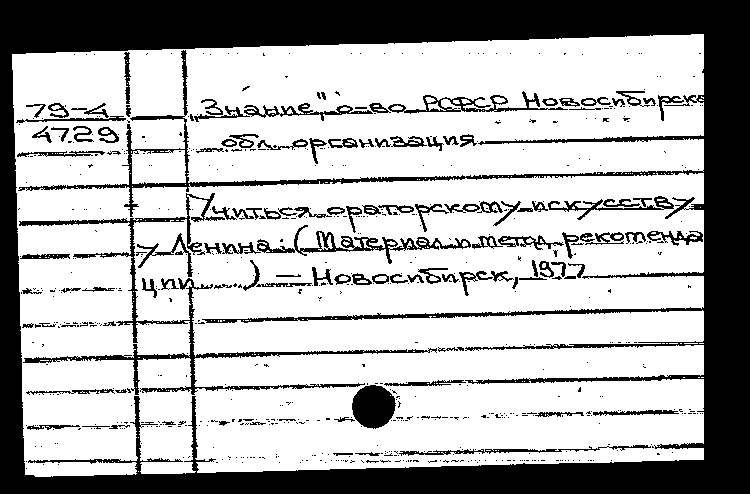 79-4
4729
„Знание", о-во РСФСР Новосибирска
обл. организация
Учиться ораторскому искусству
у Ленина: (Материал и метод. рекоменда
ции ) — Новосибирск, 1977